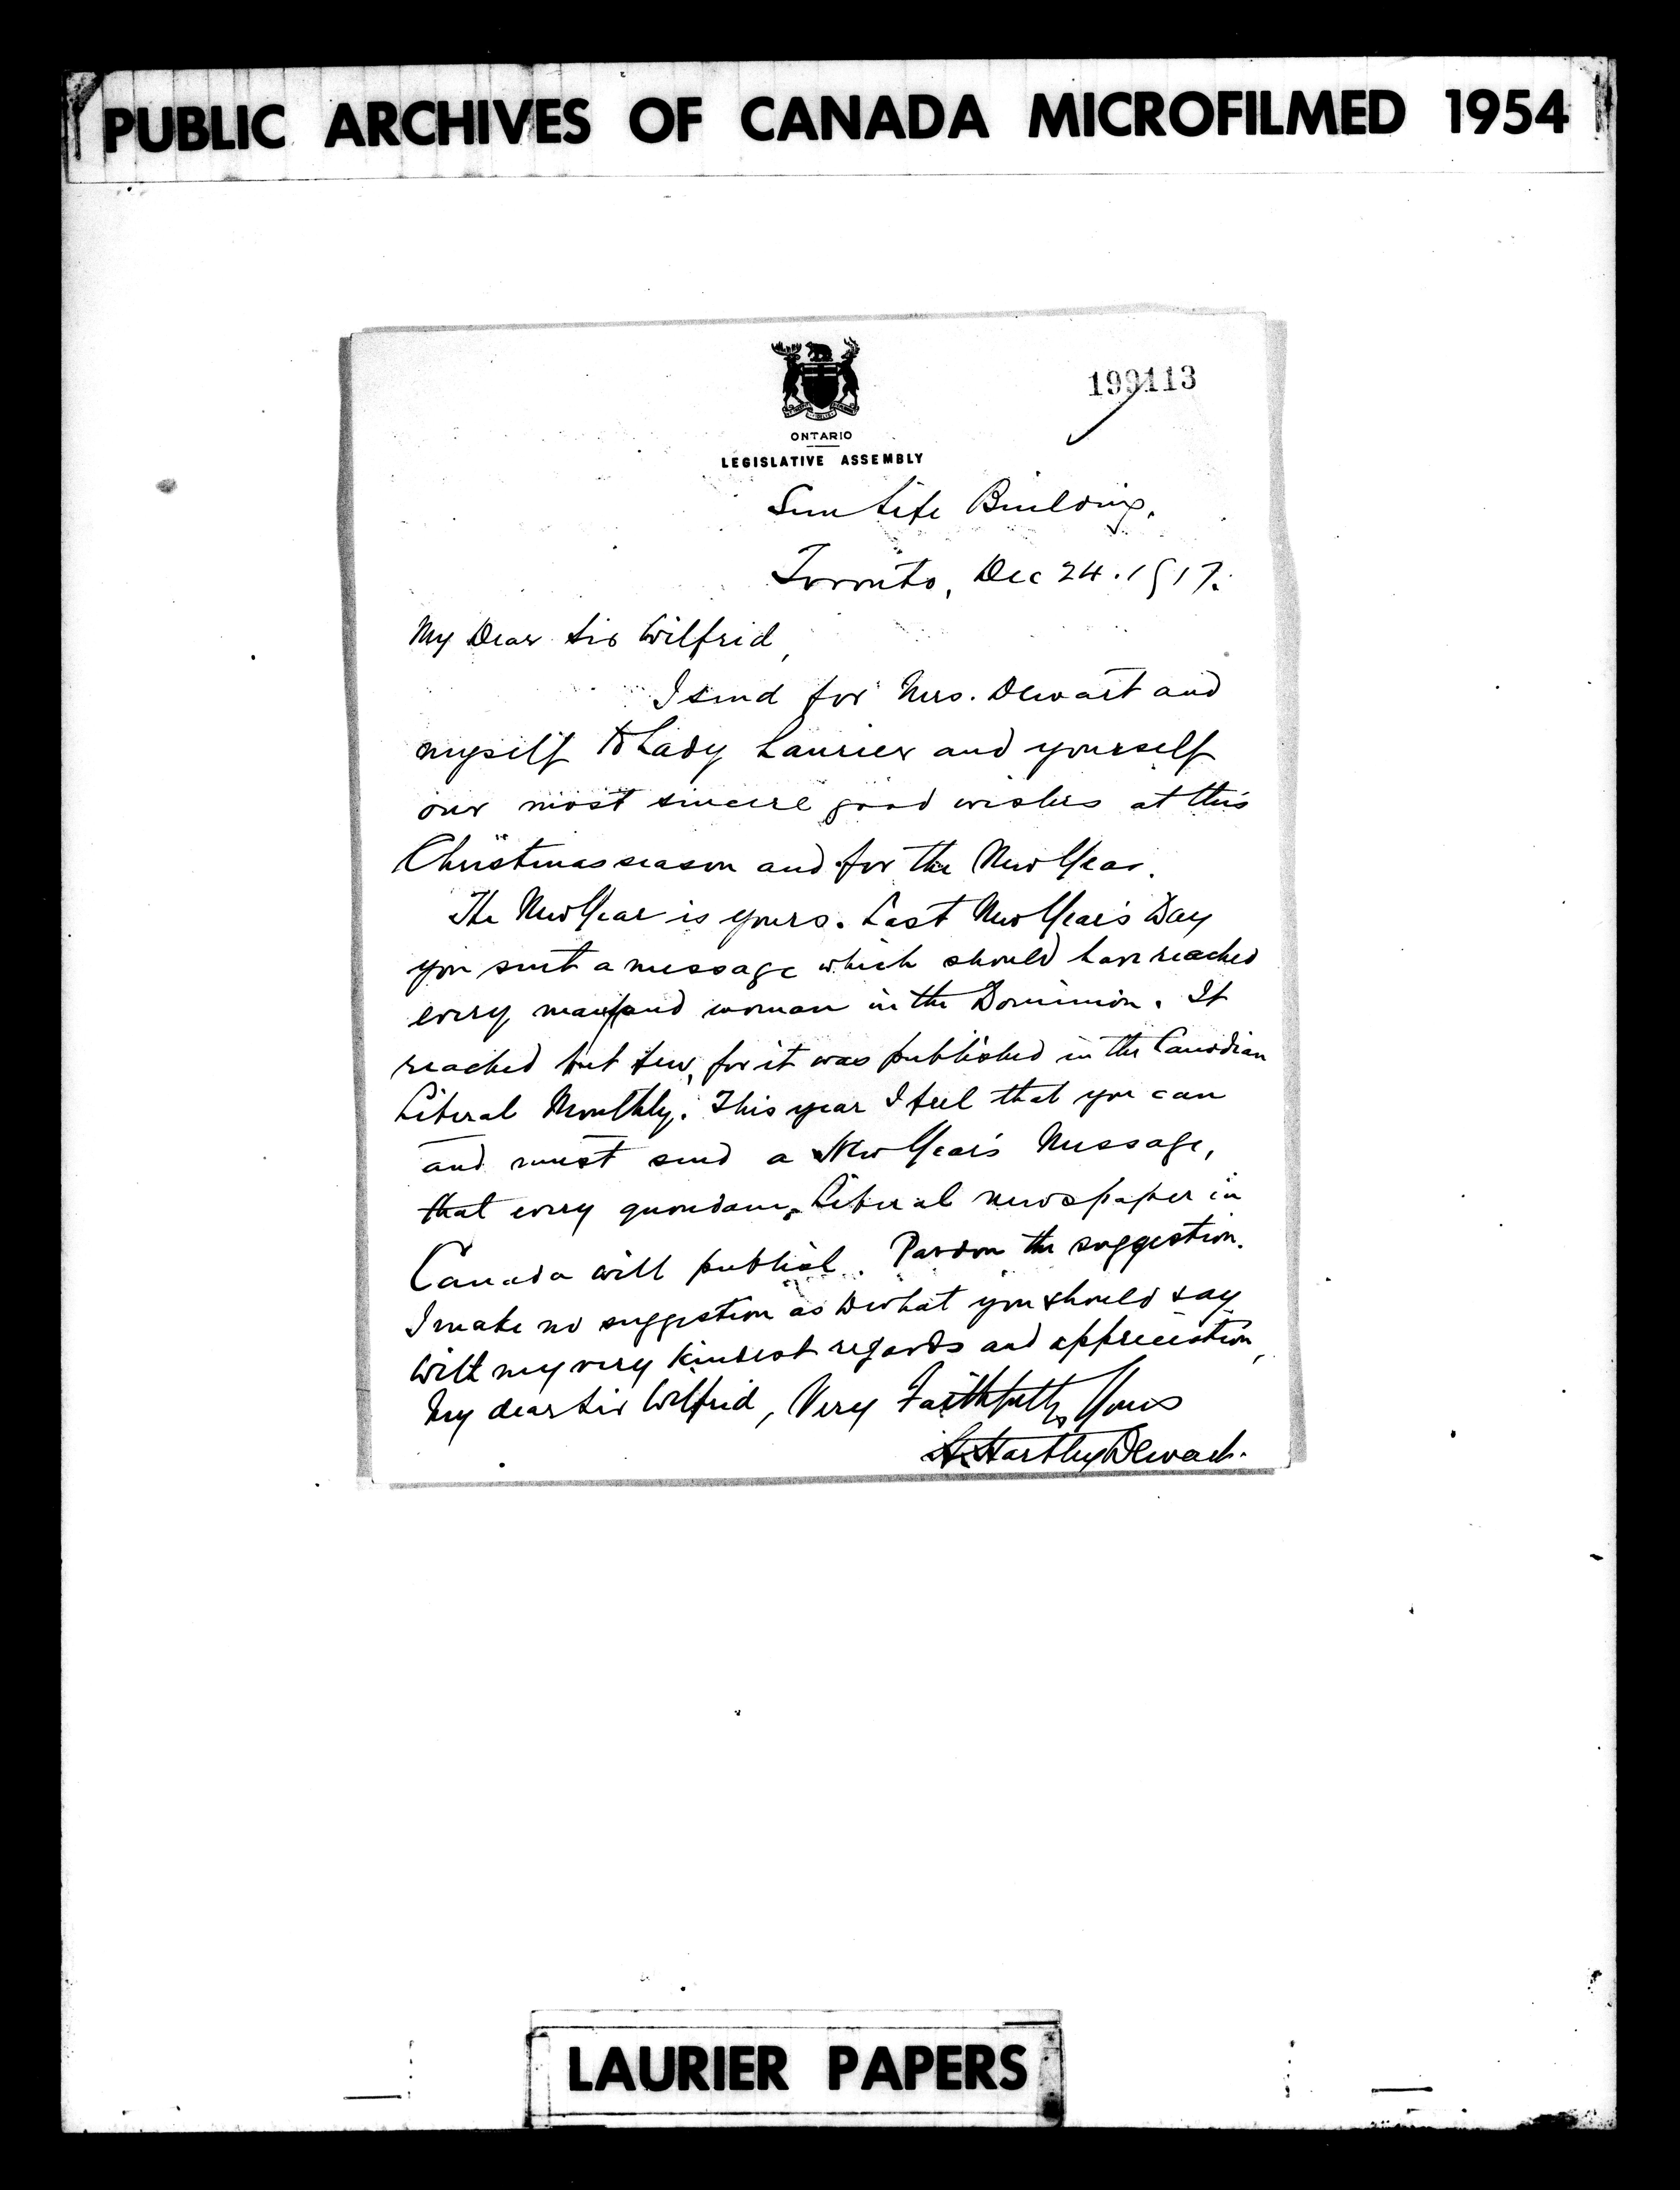 PUBLIC ARCHIVES OF CANADA MICROFILMED 1954
199113
ONTARIO
LEGISLATIVE ASSEMBLY
Sun Life Building.
Toronto, Dec 24. 1917.
My Dear Sir Wilfrid,
I send for Mrs. Dewart and
myself to Lady Laurier and yourself
our most sincere good wishes at this
Christmas season and for the New Year.
The New Year is yours. Last New Year's Day
you sent a message which should have reached
every man and woman in the Dominion. It
reached but few, for it was published in the Canadian
Liberal Monthly. This year I feel that you can
and must send a New Year's Message,
that every quondam Liberal newspaper in
Canada will publish. Pardon the suggestion.
I make no suggestion as to what you should say
With my very kindest regards and appreciation,
My dear Sir Wilfrid, Very Faithfully Yours
H. Hartley Dewart.
LAURIER PAPERS